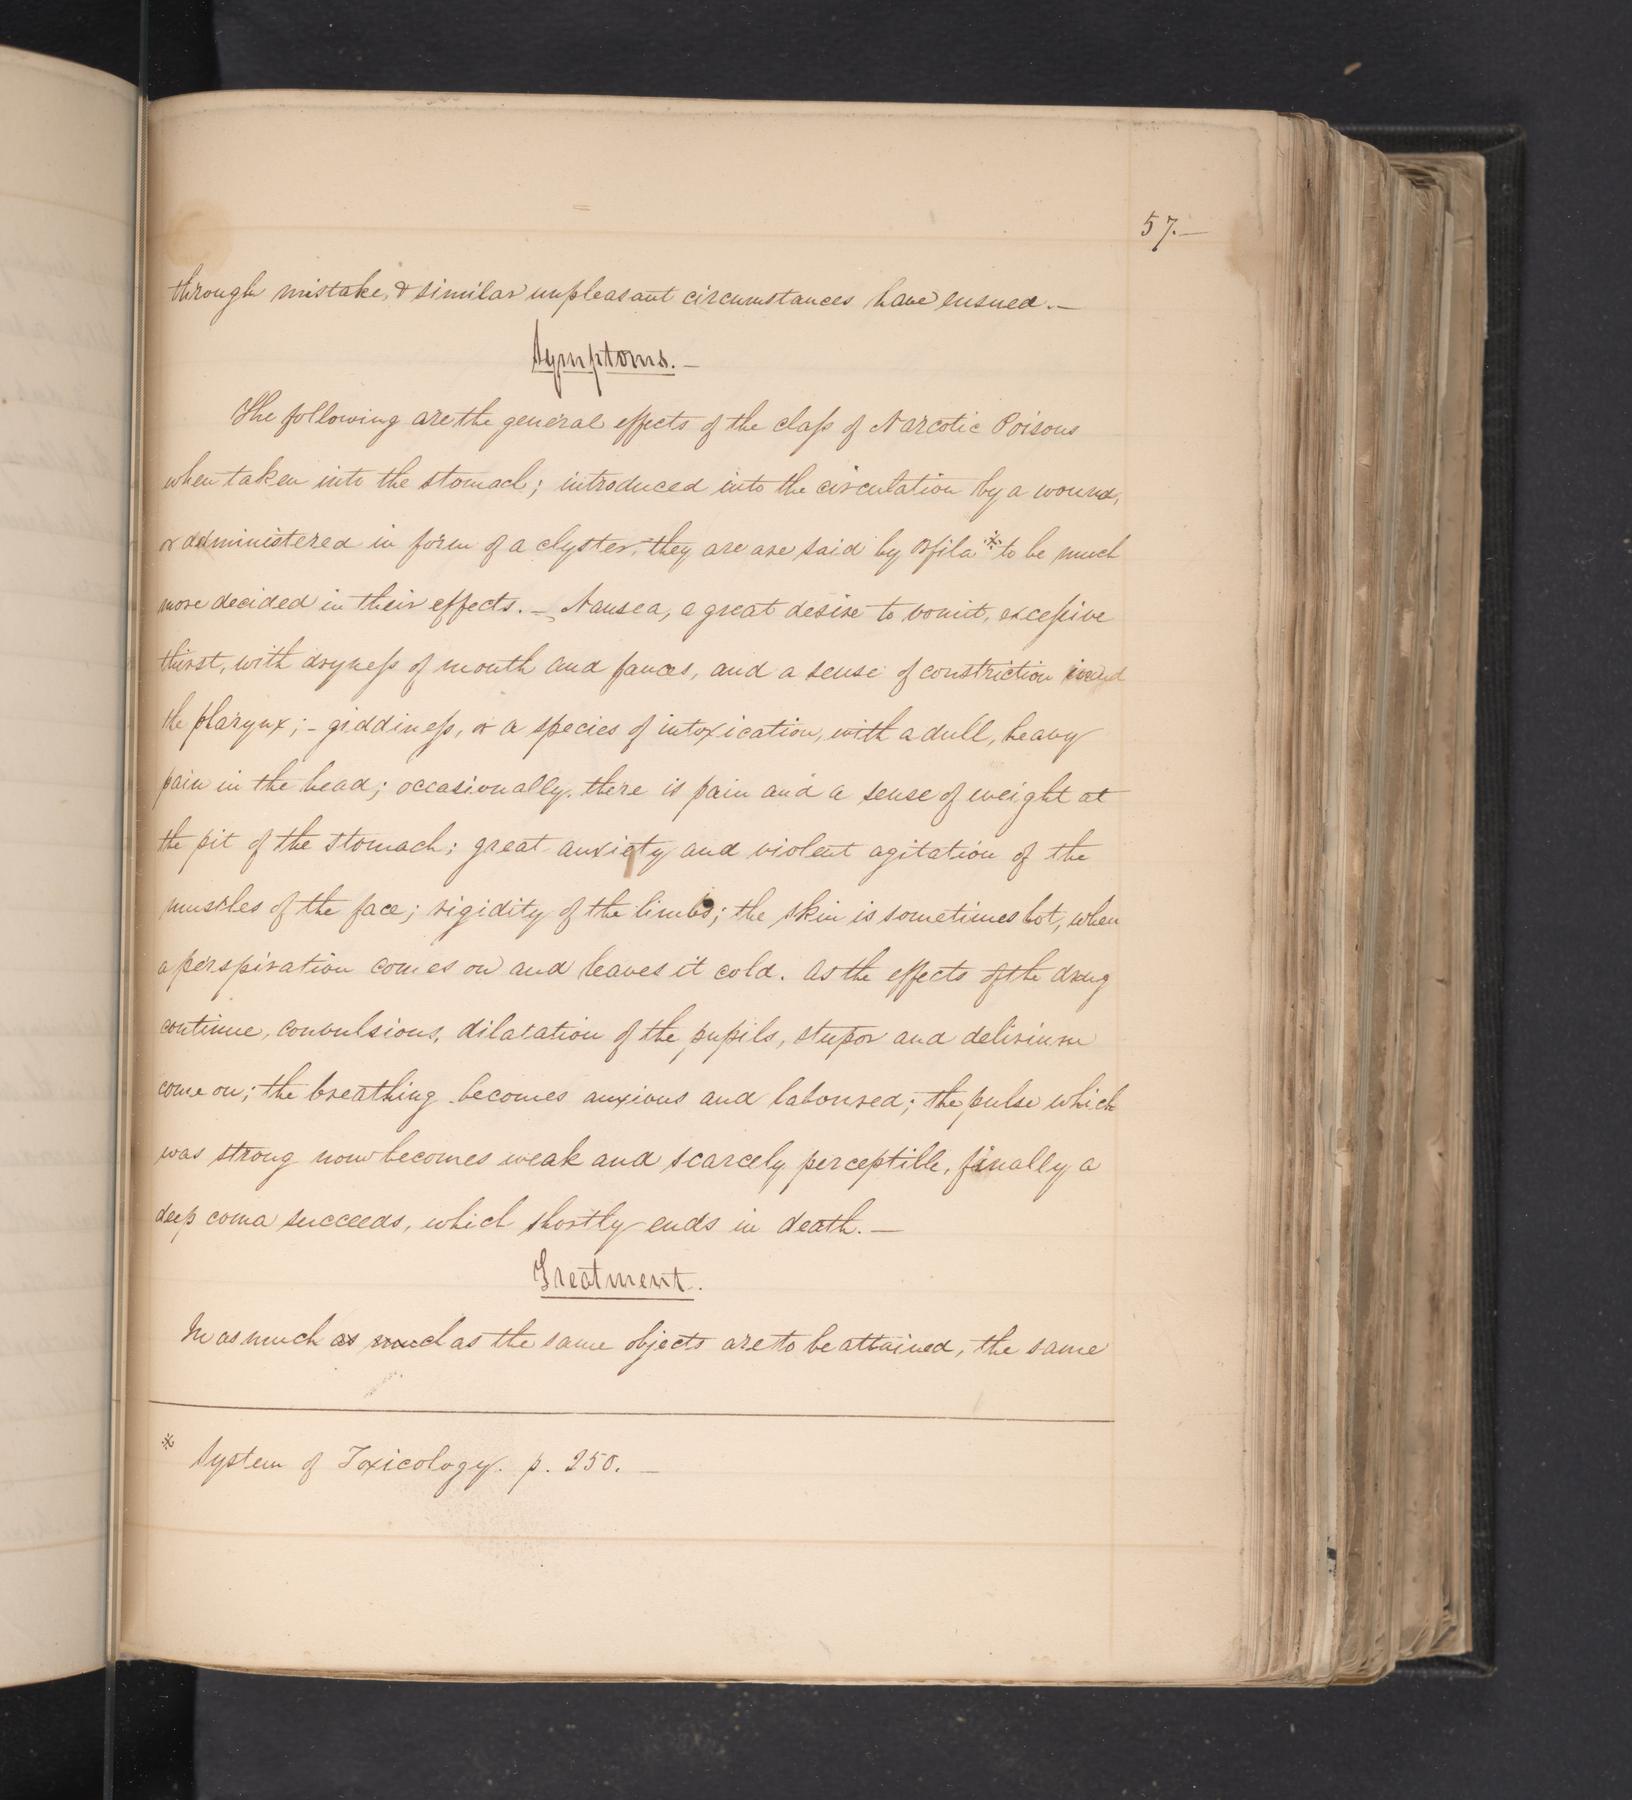 57.—
through mistake, & similar unpleasant circumstances have ensued.—
Symptoms.—
The following are the general effects of the claſs of Narcotic Poisons
when taken into the stomach; introduced into the circulation by a wound,
or administered in form of a clyster, they are are said by Orfila * to be much
more decided in their effects. — Nausea, a great desire to vomit, exceſsive
thirst, with dryneſs of mouth and fauces, and a sense of constriction
the pharynx; - giddineſs, or a species of intoxication, with a dull, heavy
pain in the head; occasionally there is pain and a sense of weight at
the pit of the stomach; great anxiety and violent agitation of the
muscles of the face; rigidity of the limbs; the skin is sometimes hot, when
a perspiration comes on and leaves it cold. As the effects of the drug
continue, convulsions, dilatation of the pupils, stupor and delirium
come on; the breathing becomes anxious and laboured; the pulse which
was strong now becomes weak and scarcely perceptible, finally a
deep coma succeeds, which shortly ends in death.—
Treatment.
In as much as much as the same objects are to be attained, the same
* System of Toxicology. p. 250.—